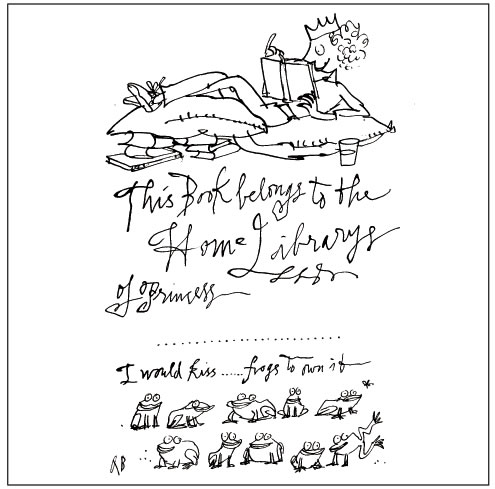 This Book belongs to the
Home Librarys
of Princess
....................................
I would kiss ...... frogs to own it
RB